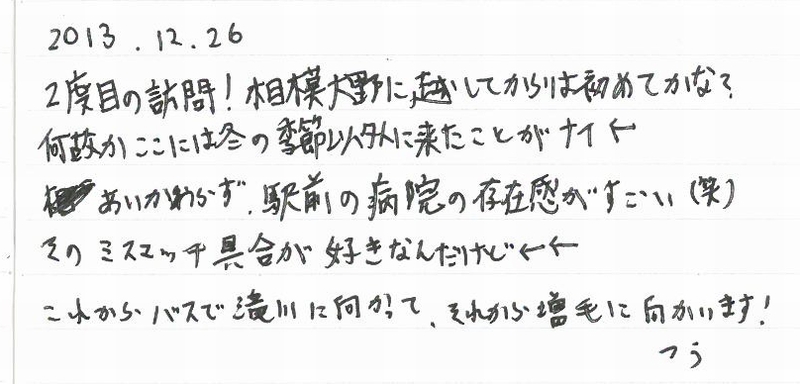 2013.12.26
2度目の訪問!相模大野に越してからは初めてかな?
何故かここには冬の季節以外に来たことがナイ←
あいかわらず、駅前の病院の存在感がすごい(笑)
そのミスマッチ具合が好きなんだけど←←
これからバスで滝川に向かって、それから増毛に向かいます!
つう